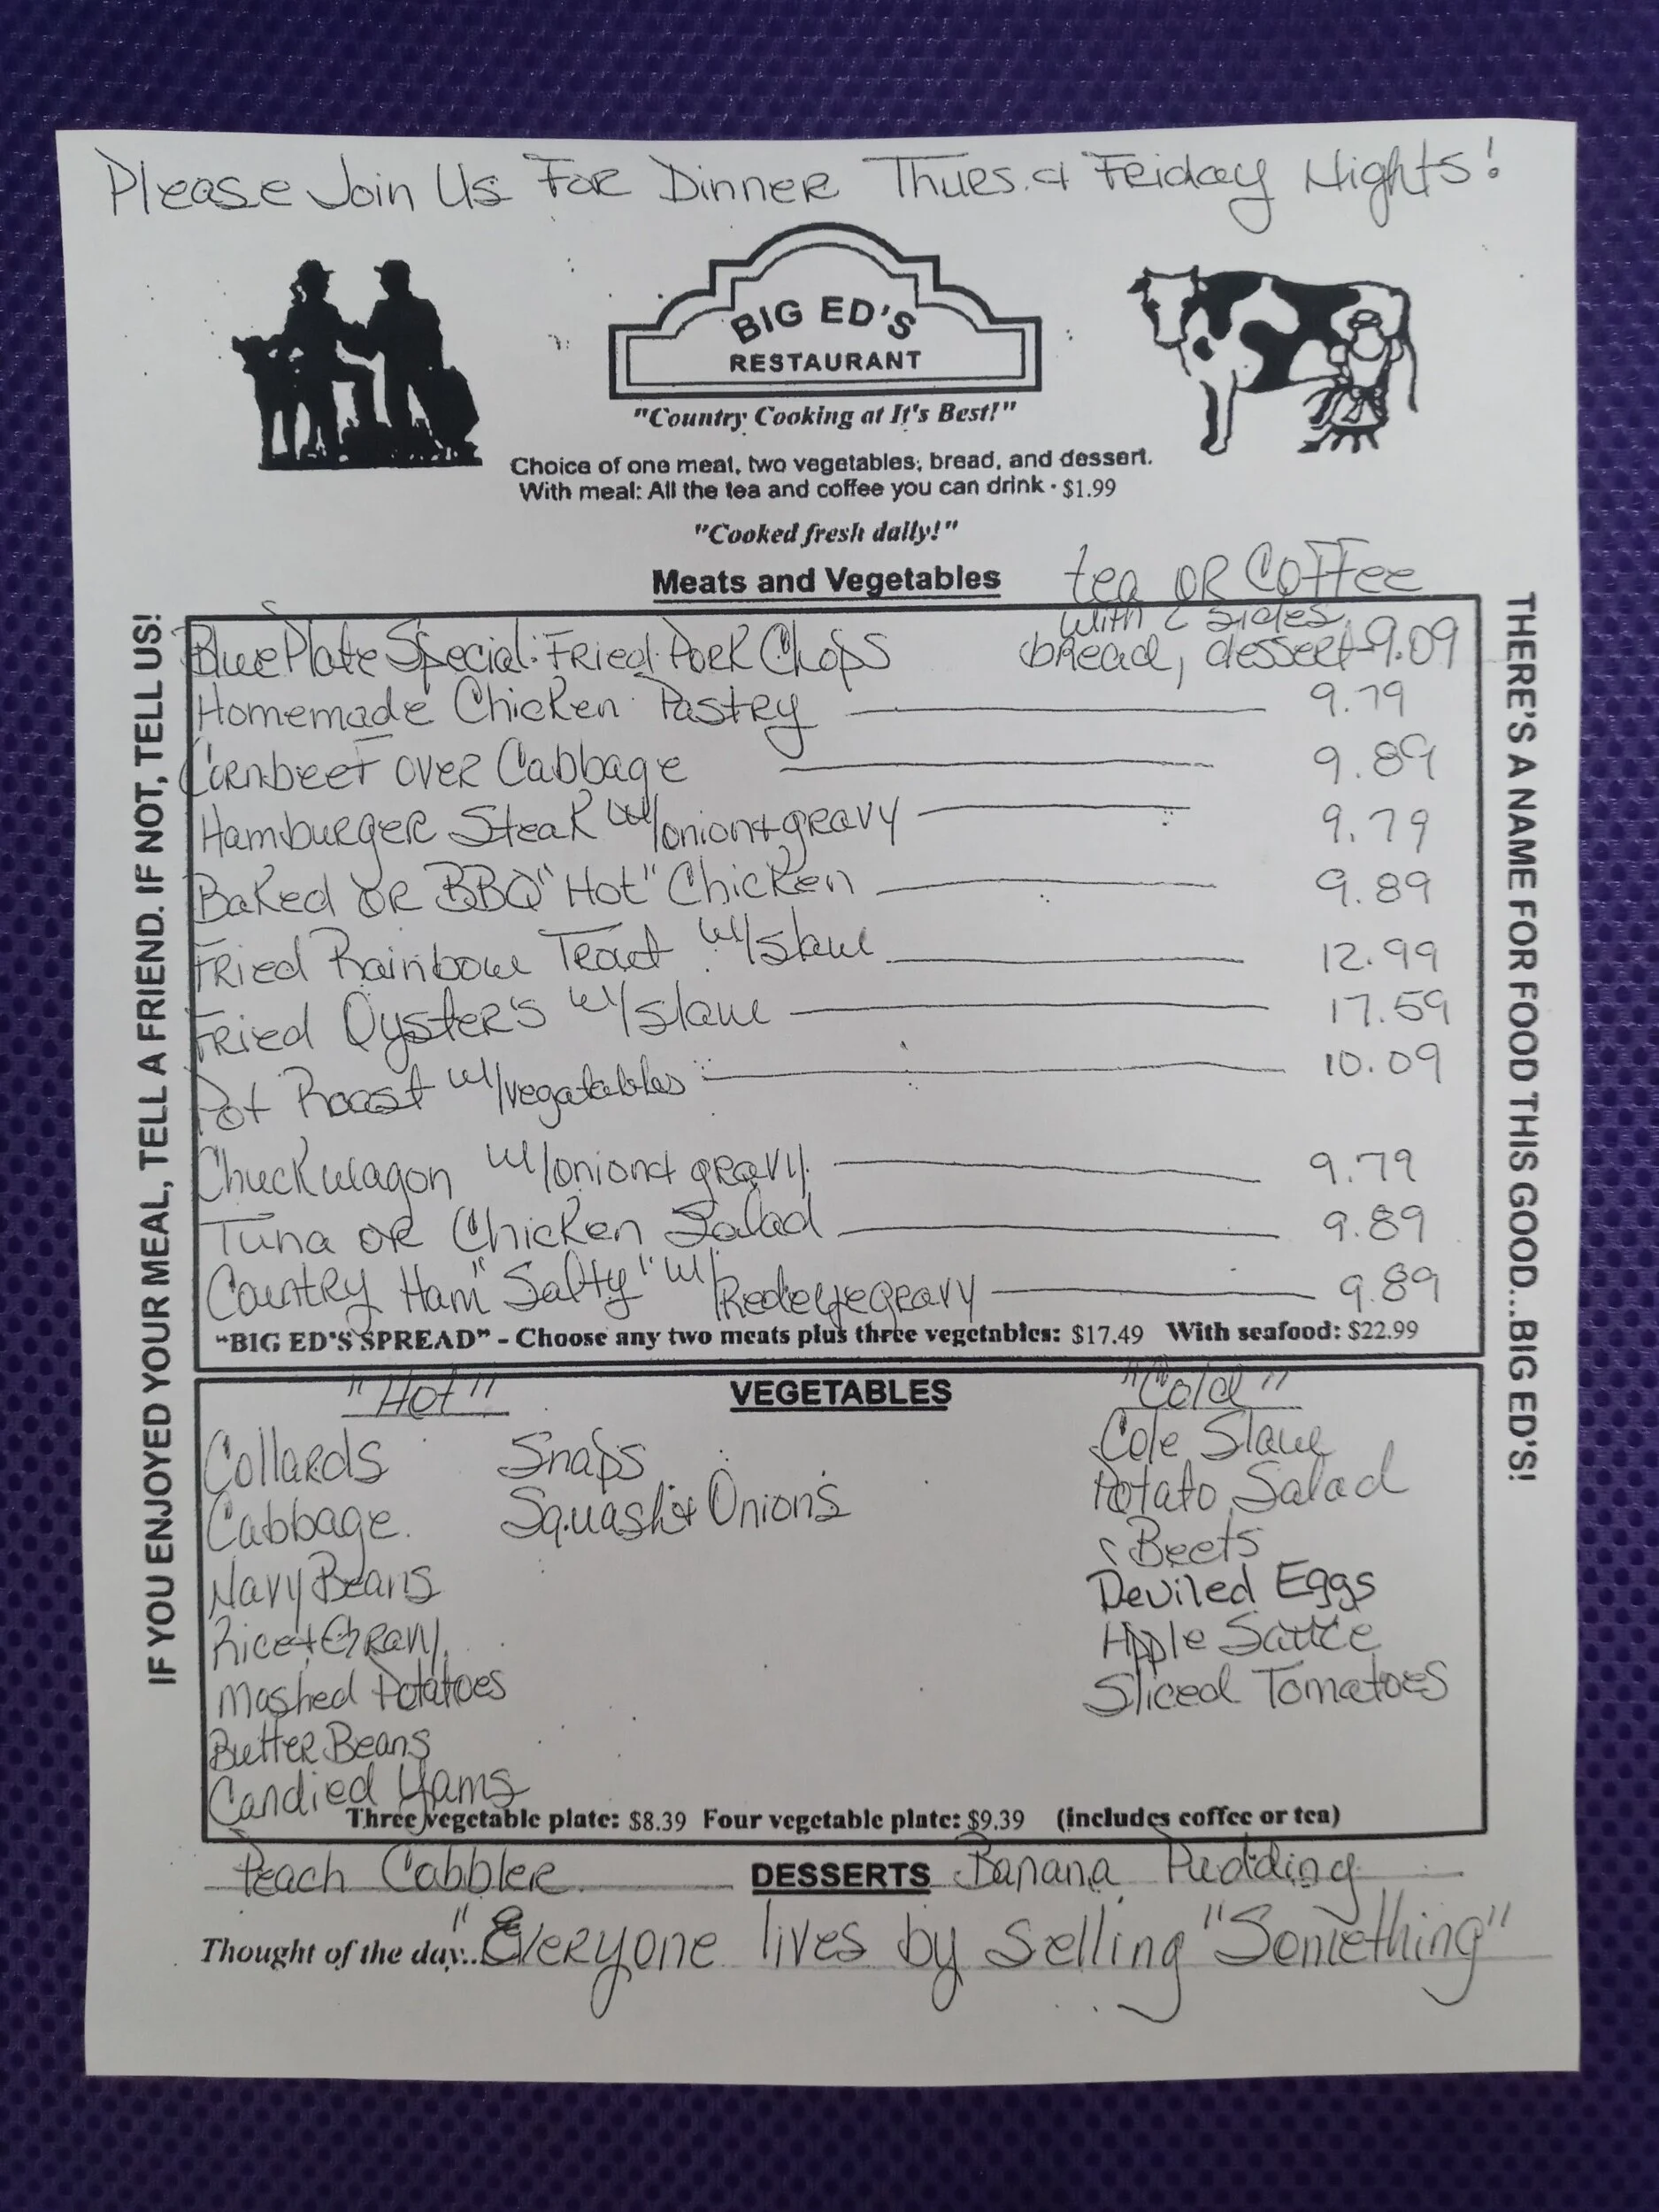 Please Join Us For Dinner Thurs. & Friday Nights!
BIG ED'S
RESTAURANT
"Country Cooking at It's Best!"
Choice of one meat, two vegetables, bread, and dessert.
With meal: All the tea and coffee you can drink - $1.99
"Cooked fresh daily!"
Meats and Vegetables
tea or Coffee
with 2 sides,
Blue Plate Special: Fried Pork Chops bread, dessert - 9.09
Homemade Chicken Pastry 9.79
Cornbeef over Cabbage 9.89
Hamburger Steak w/onion+gravy 9.79
Baked or BBQ "Hot" Chicken 9.89
Fried Rainbow Trout w/slaw 12.99
Fried Oyster's w/slaw 17.59
Pot Roast w/vegatables 10.09
Chuckwagon w/onion+gravy 9.79
Tuna or Chicken Salad 9.89
Country Ham "Salty" w/Redeyegravy 9.89
"BIG ED'S SPREAD" - Choose any two meats plus three vegetables: $17.49 With seafood: $22.99
IF YOU ENJOYED YOUR MEAL, TELL A FRIEND. IF NOT, TELL US!
THERE'S A NAME FOR FOOD THIS GOOD...BIG ED'S!
"Hot" VEGETABLES "Cold"
Collards Snaps Cole Slaw
Cabbage Squash+Onions Potato Salad
Navy Beans Beets
Rice+Gravy Deviled Eggs
Mashed Potatoes Apple Sauce
Butter Beans Sliced Tomatoes
Candied Yams
Three vegetable plate: $8.39 Four vegetable plate: $9.39 (includes coffee or tea)
Peach Cobbler DESSERTS Banana Pudding
Thought of the day... "Everyone lives by selling "Something"